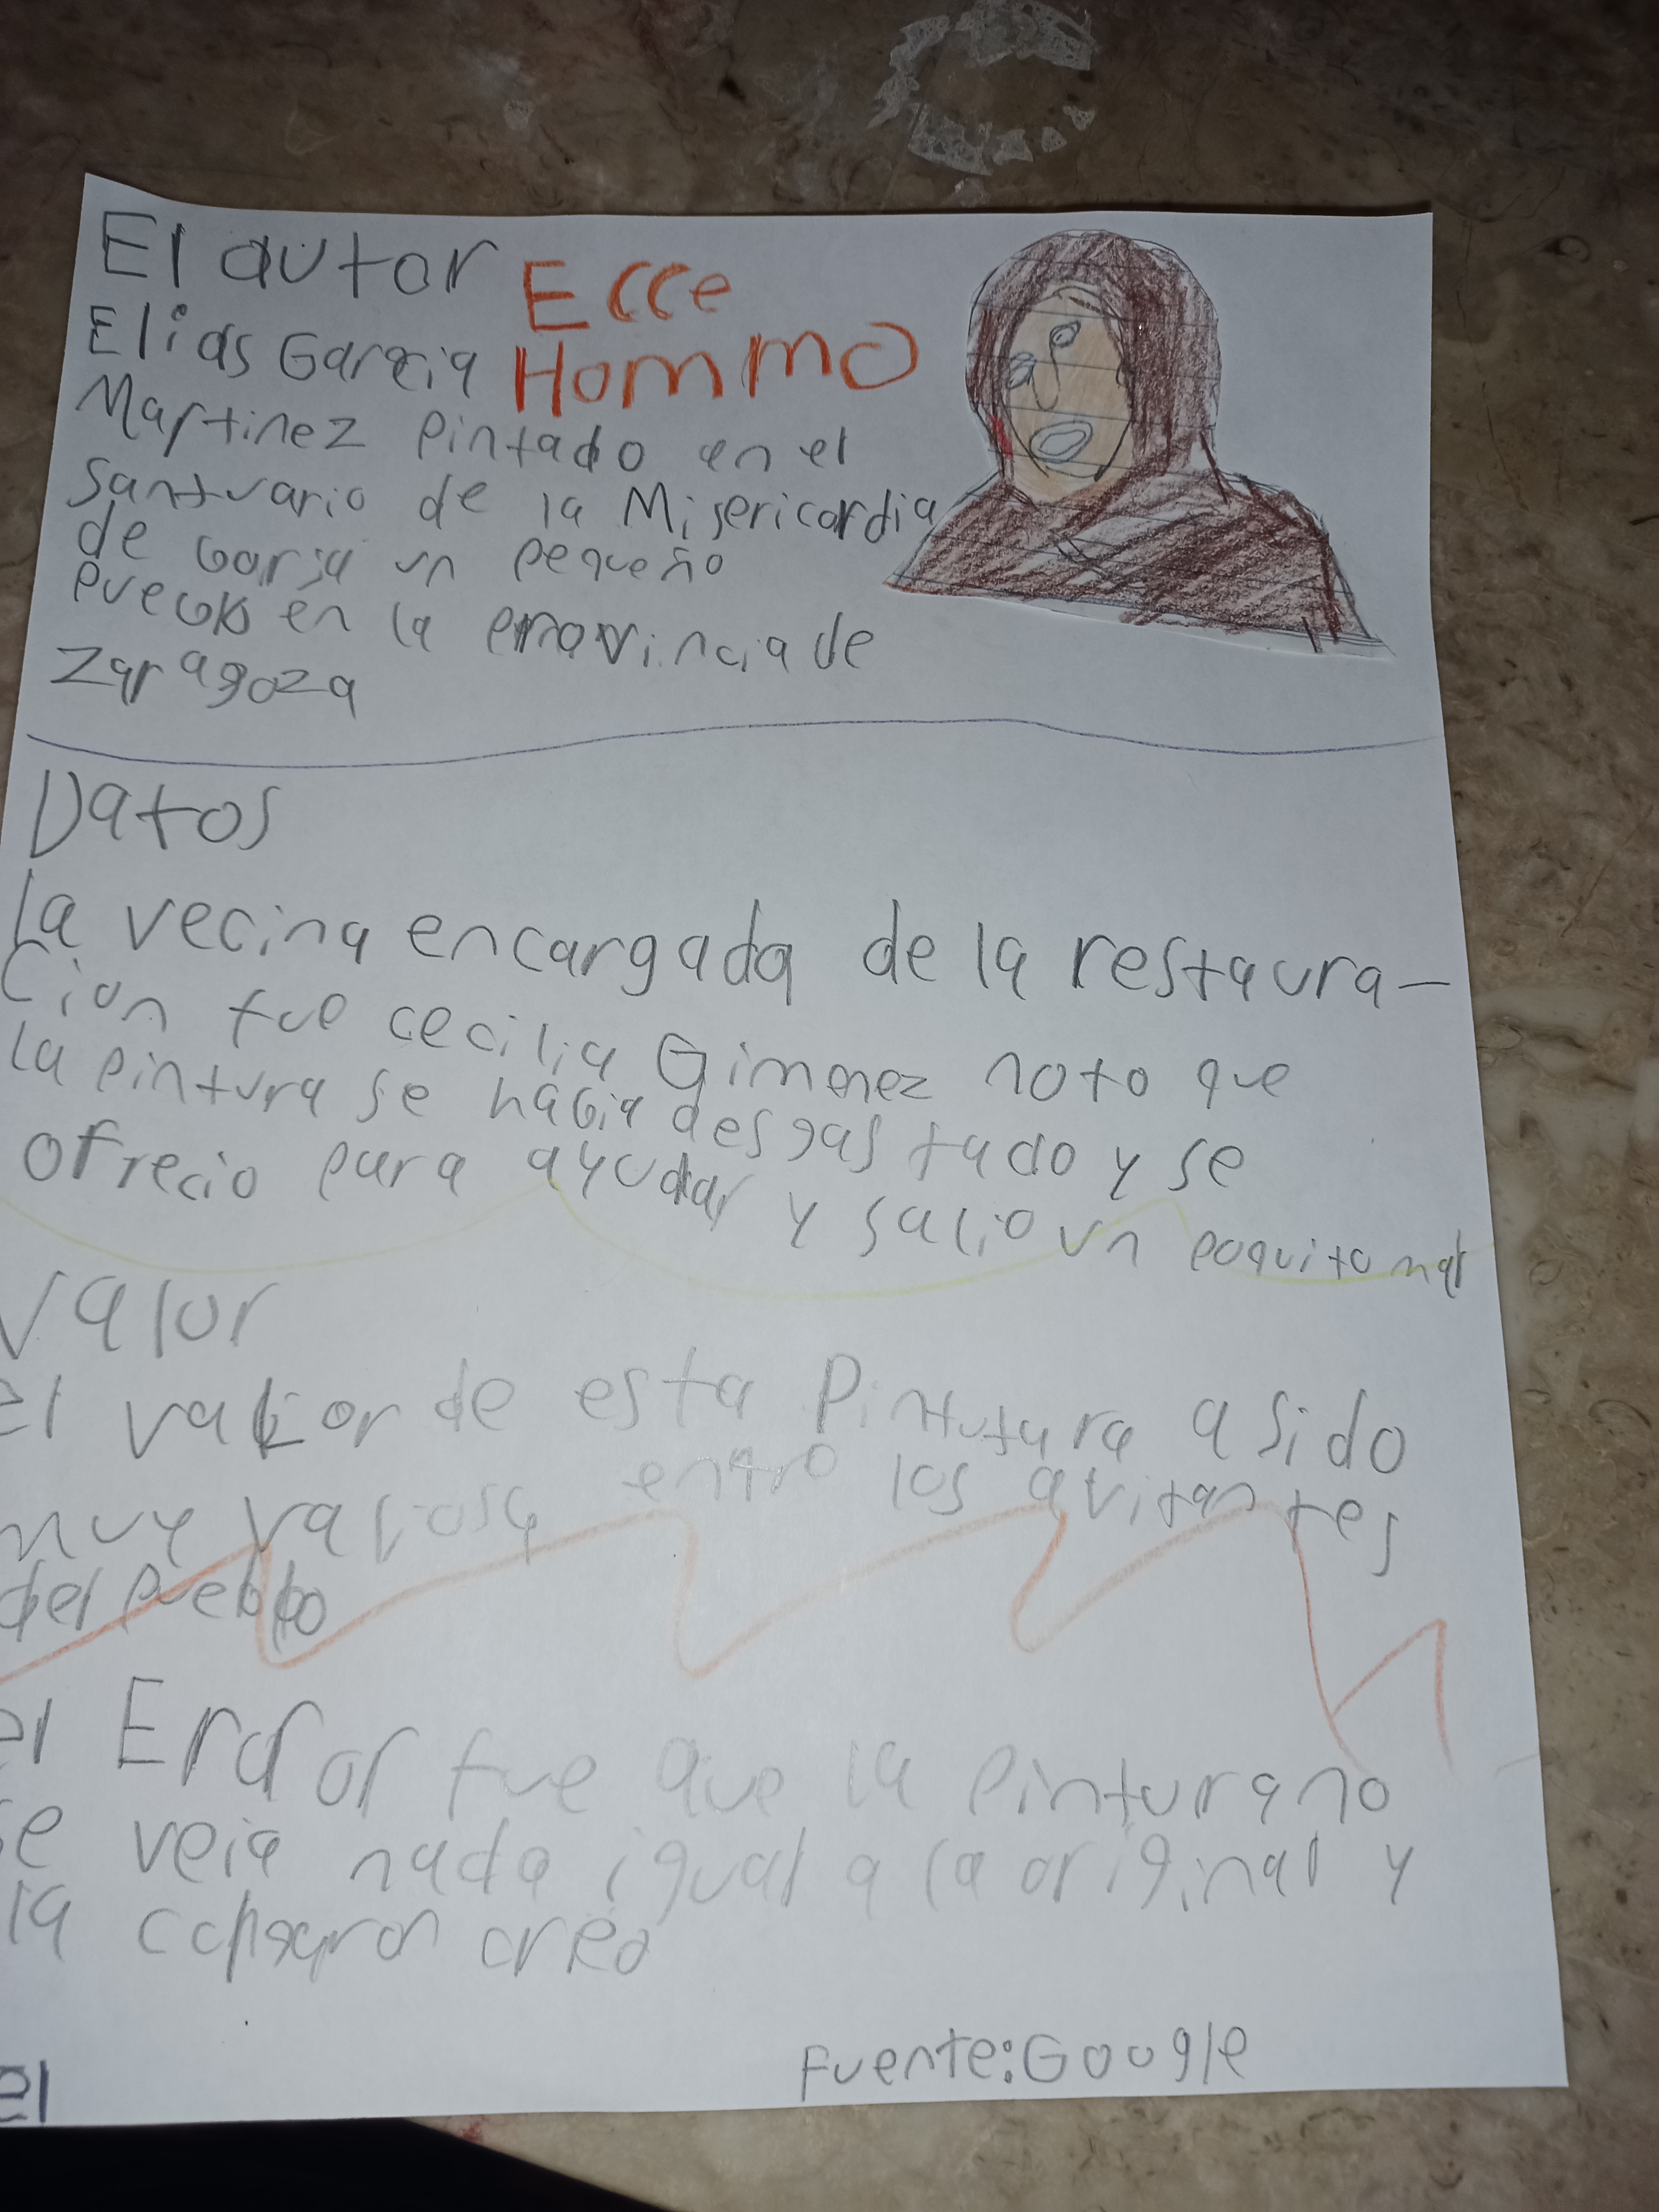 El autor
Ecce
Hommo
Elias Garcia
Martinez pintado en el
Santuario de la Misericordia
de borja un pequeño
pueblo en la provincia de
Zaragoza
Datos
la vecina encargada de la restaura-
cion fue cecilia Gimenez noto que
la pintura se habia desgastado y se
ofrecio para ayudar y salio un poquito mal
valor
el valor de esta Pintutura a sido
muy valiosa entre los avitantes
del Pueblo
el Error fue que la pintura no
se veia nada igual a la original y
la creo
Fuente:Google
el